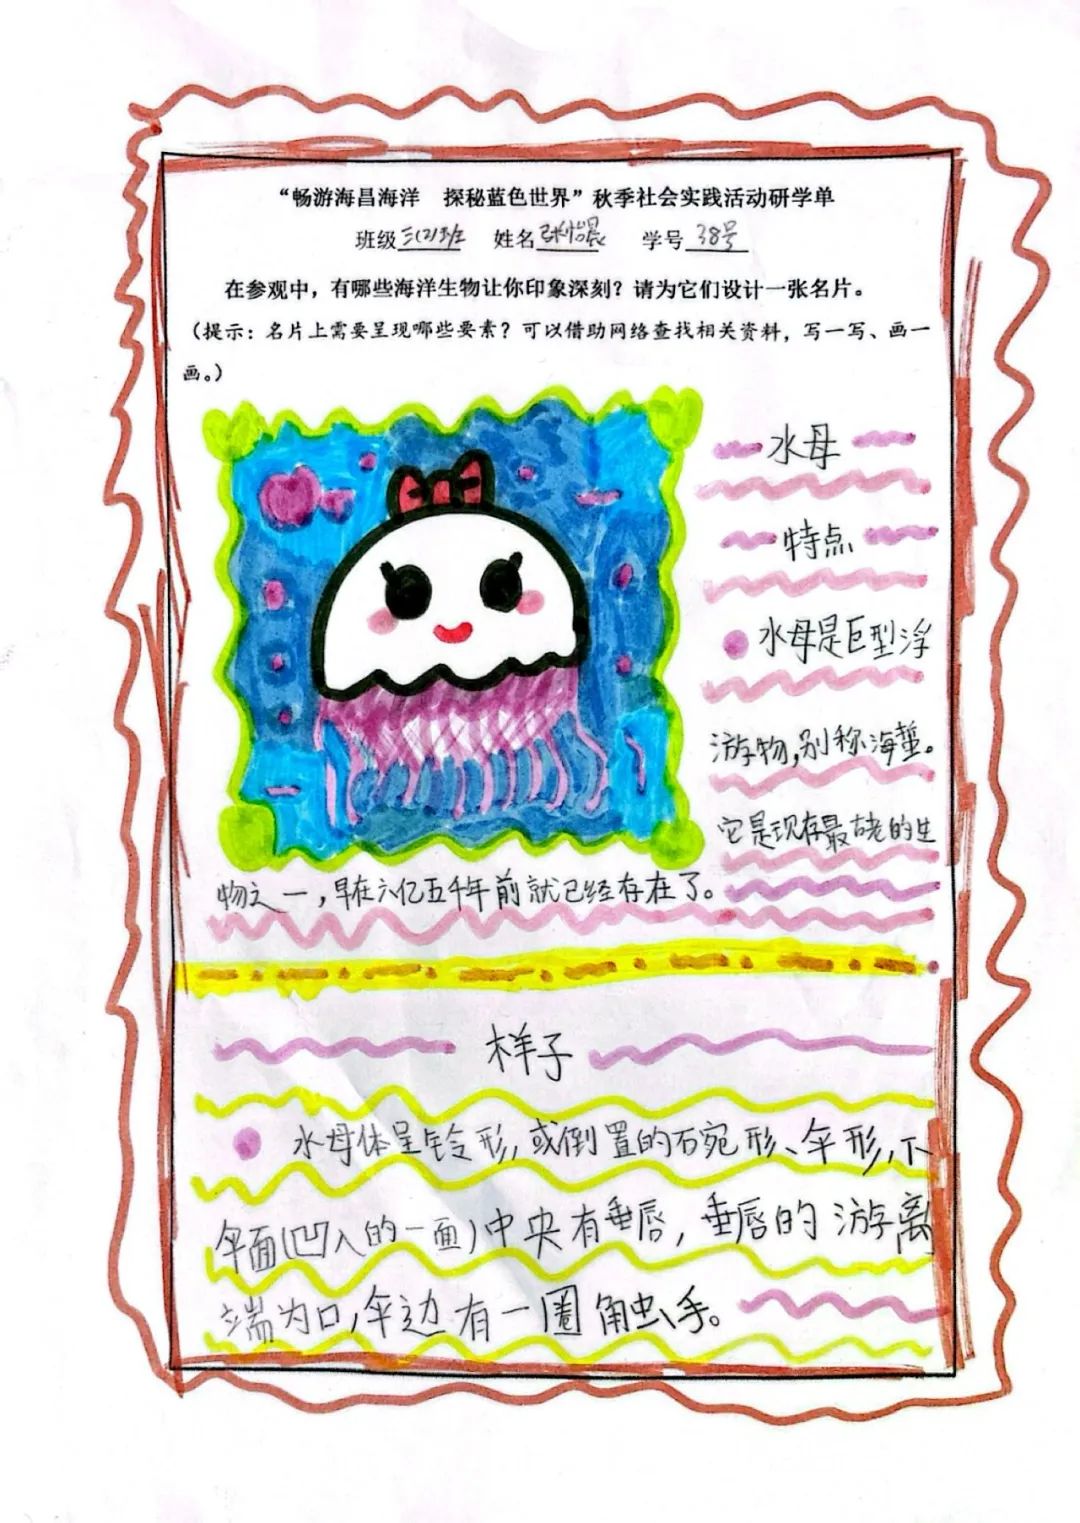 “畅游海昌海洋　探秘蓝色世界”秋季社会实践活动研学单
班级三(2)班　姓名张怡晨　学号38号
在参观中，有哪些海洋生物让你印象深刻？请为它们设计一张名片。
（提示：名片上需要呈现哪些要素？可以借助网络查找相关资料，写一写、画一
画。）
水母
特点
水母是巨型浮
游物,别称海蜇。
它是现存最古老的生
物之一,早在六亿五千年前就已经存在了。
样子
水母体呈铃形,或倒置的石宛形、伞形,下
伞面(凹入的一面)中央有垂唇,垂唇的游离
端为口,伞边有一圈角虫手。